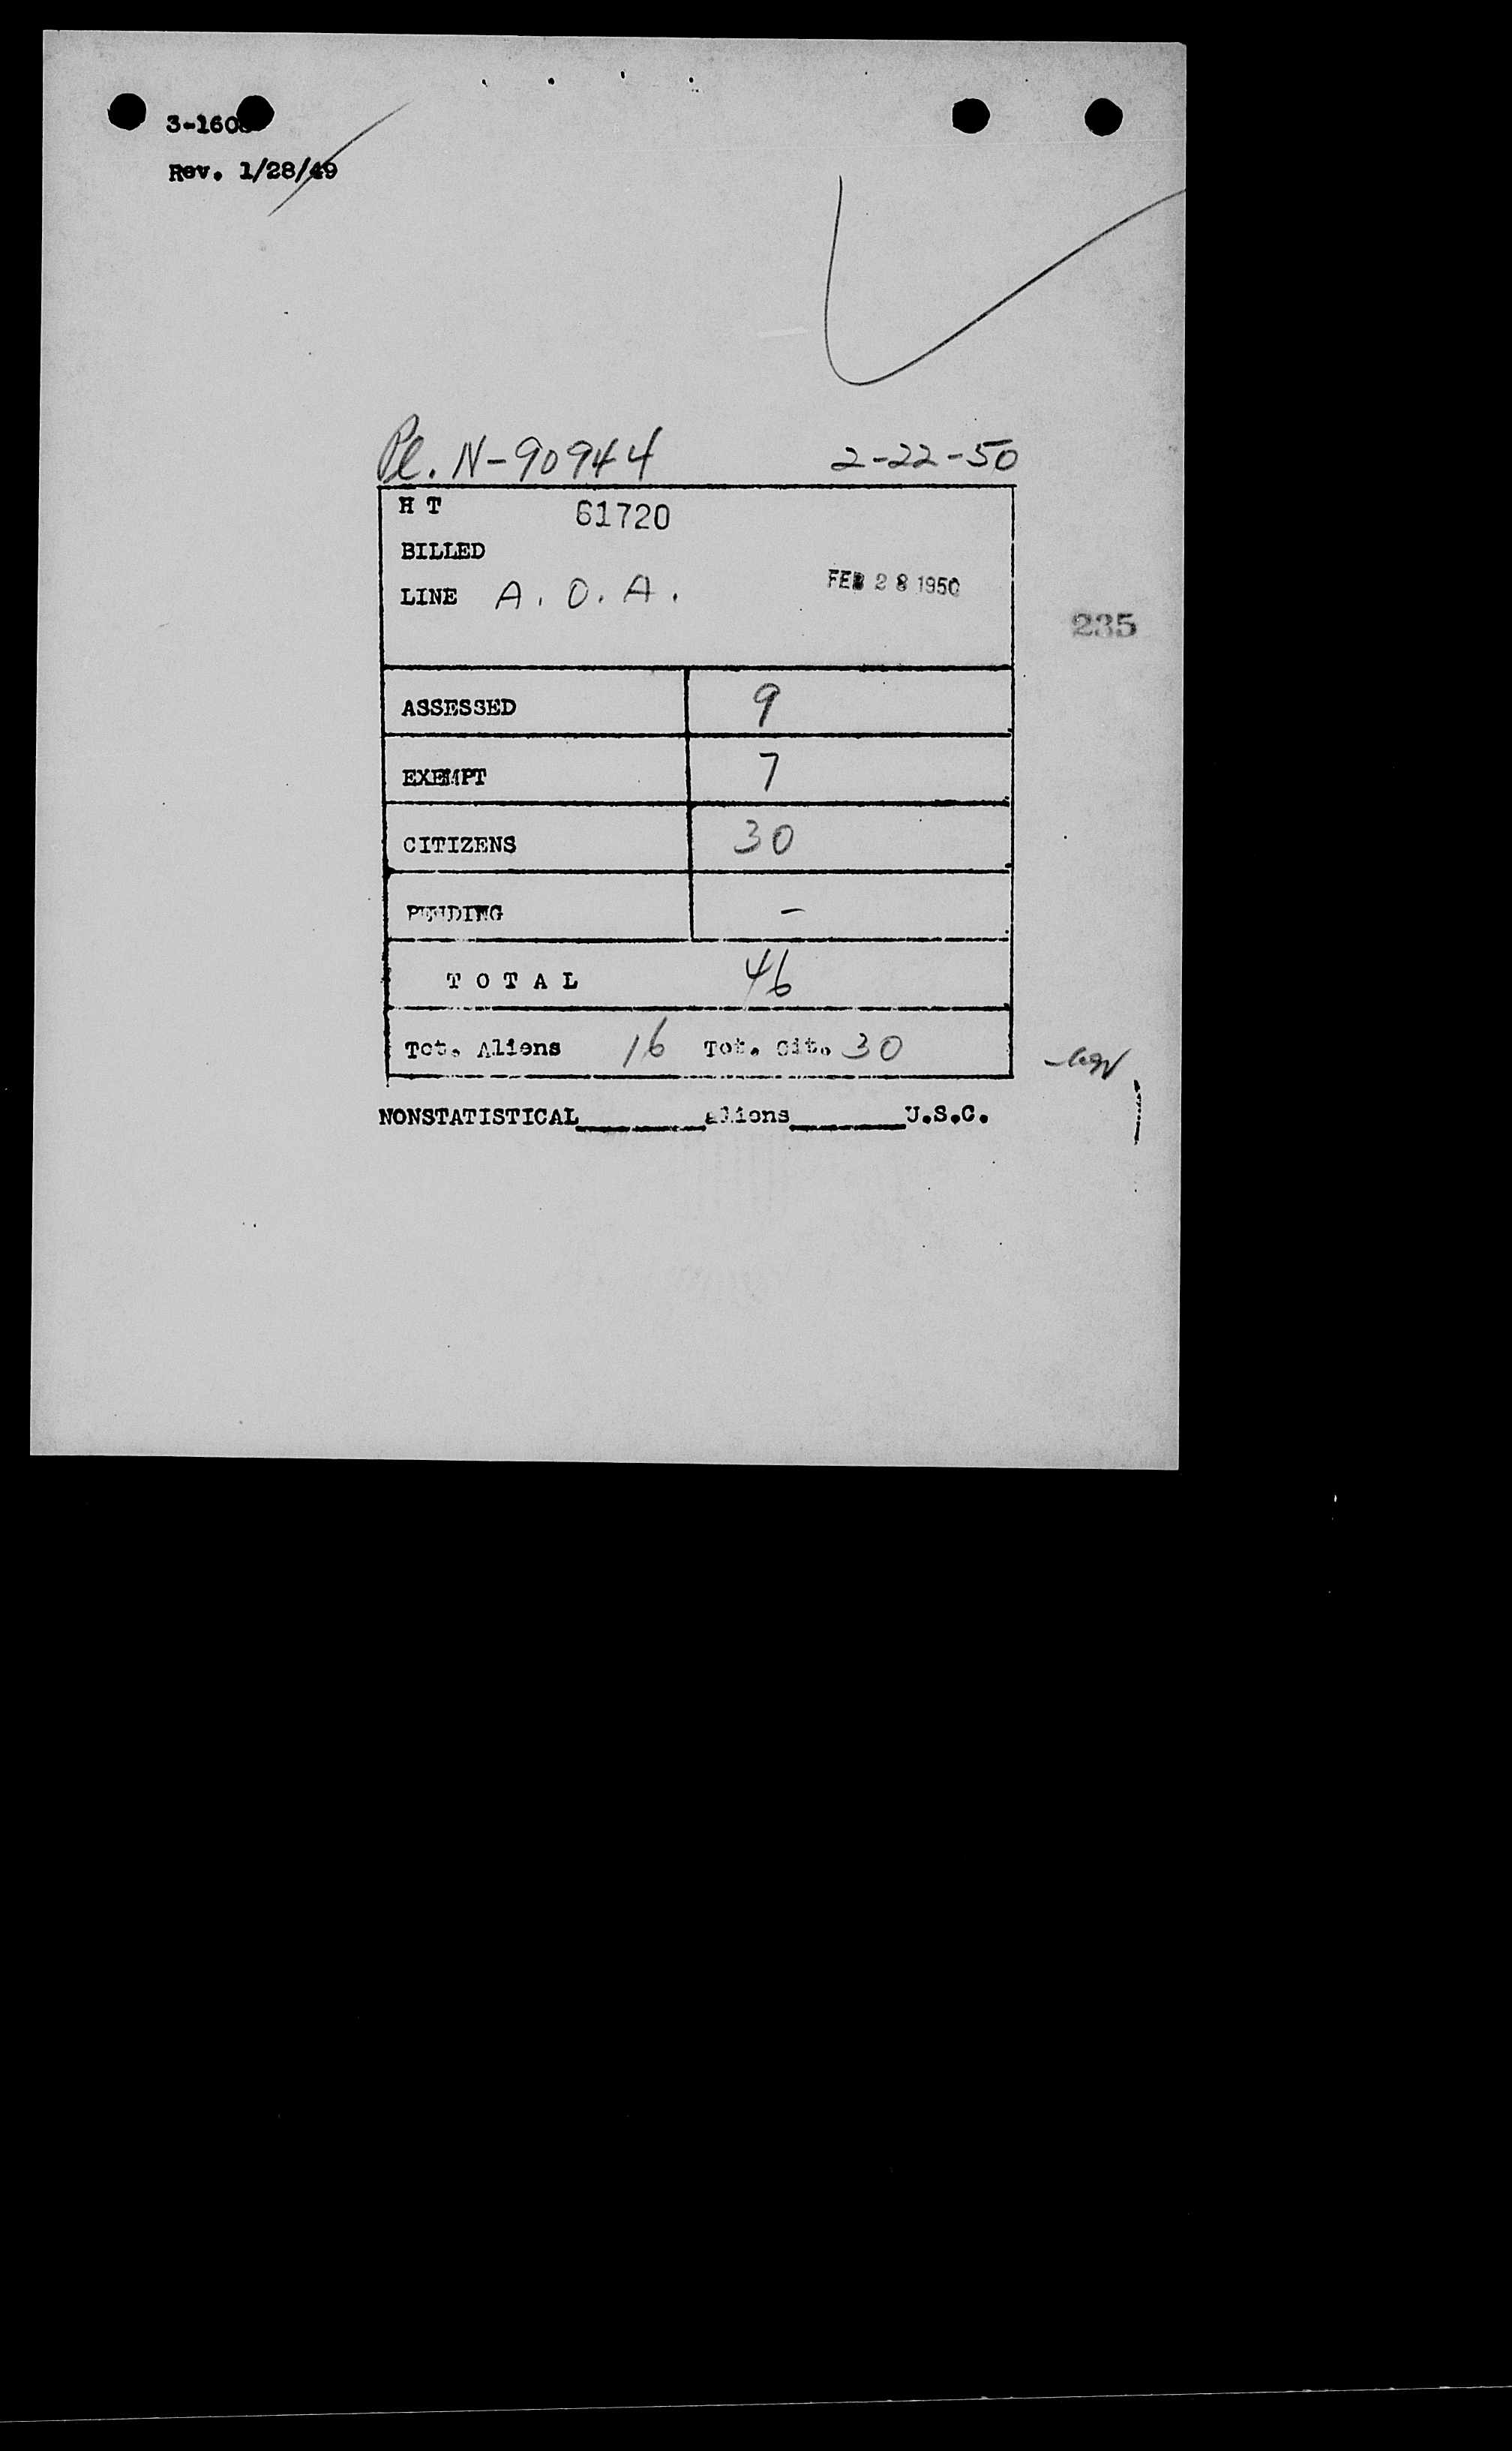 Rev. 1/28/49
Pl. N-90944 2-22-50
H T 61720
BILLED
LINE A. O. A. FEB 28 1950
235
ASSESSED 9
EXEMPT 7
CITIZENS 30
PENDING -
TOTAL 46
Tot. Aliens 16 Tot. Cit. 30
NONSTATISTICAL______Aliens______U.S.C.